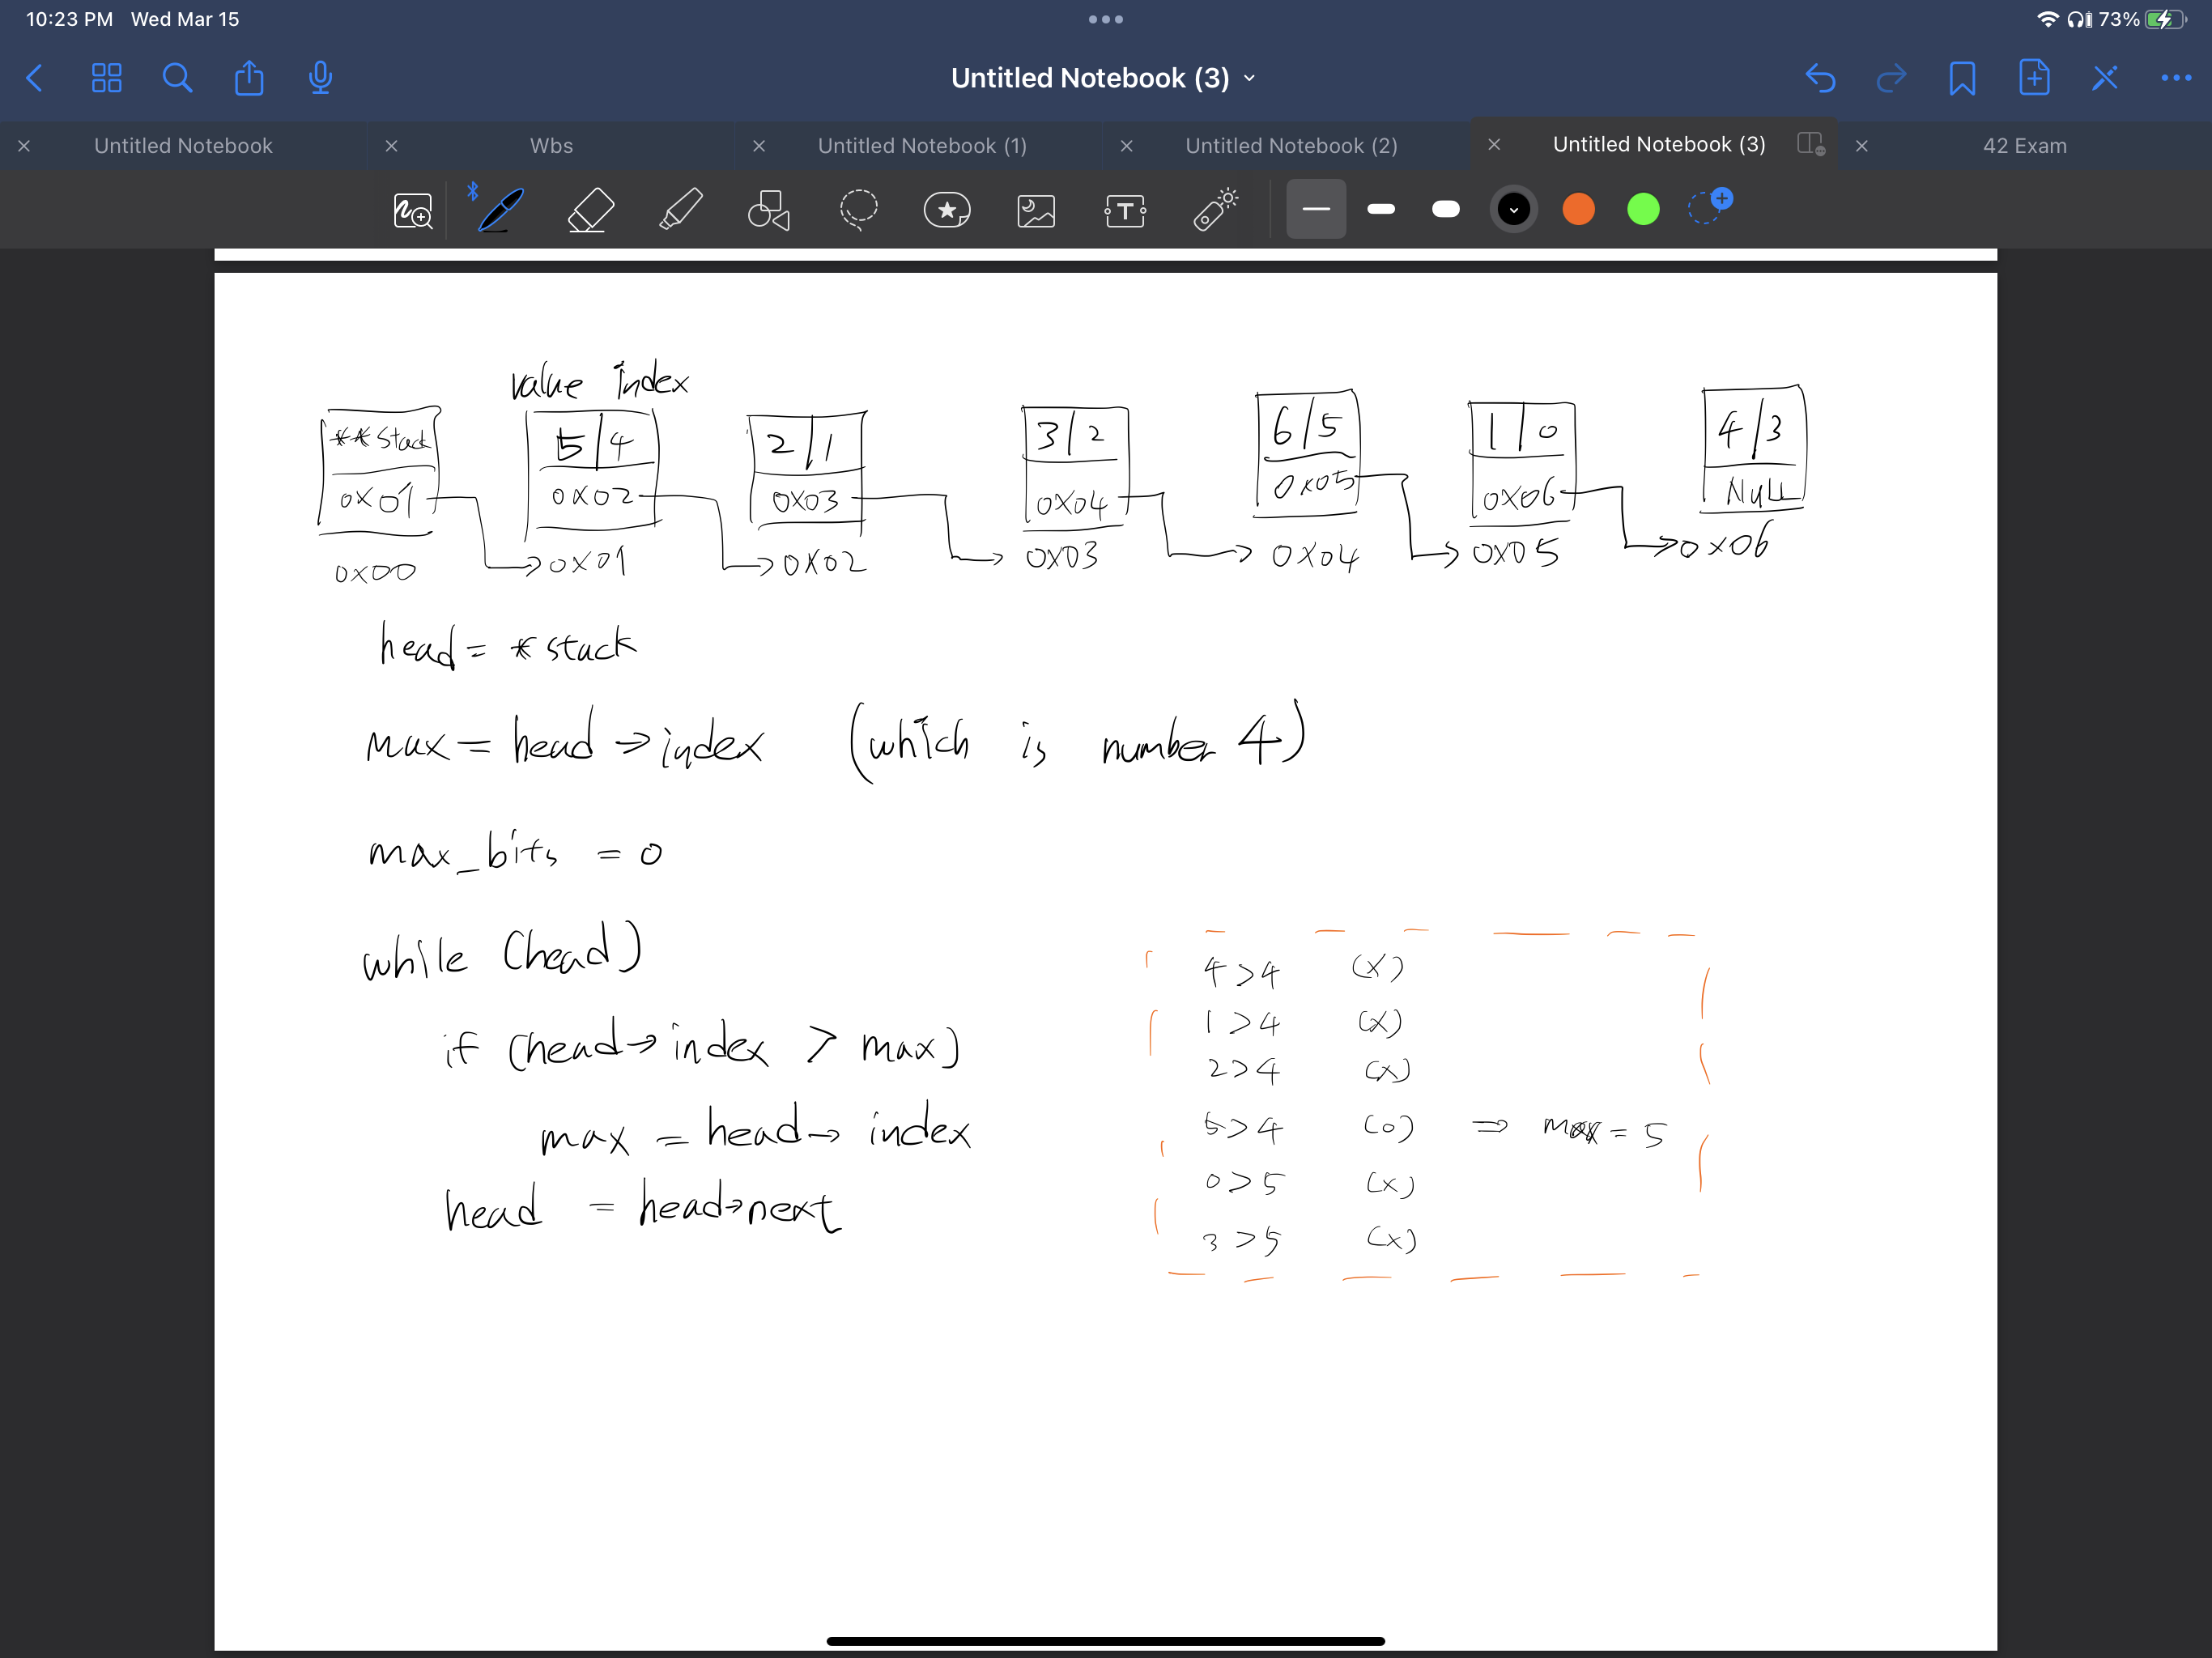 10:23 PM Wed Mar 15 73%
Untitled Notebook (3)
Untitled Notebook Wbs Untitled Notebook (1) Untitled Notebook (2) Untitled Notebook (3) 42 Exam
T
value index
**stack 5/4 2/1 3/2 6/5 1/0 4/3
0x01 0x02 0x03 0x04 0x05 0x06 Null
0x00 →0x01 →0x02 →0x03 →0x04 →0x05 →0x06
head = *stack
max = head → index (which is number 4)
max_bits = 0
while (head)
if (head→index > max)
max = head→ index
head = head→next
4>4 (x)
1>4 (x)
2>4 (x)
5>4 (o) ⇒ max = 5
0>5 (x)
3>5 (x)